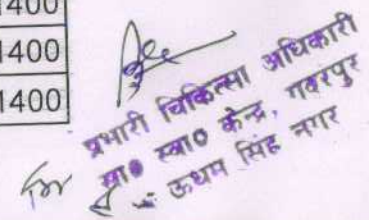 1400
1400
1400
प्रभारी चिकित्सा अधिकारी
सा० स्वा० केन्द्र, गदरपुर
for ऊधम सिंह नगर